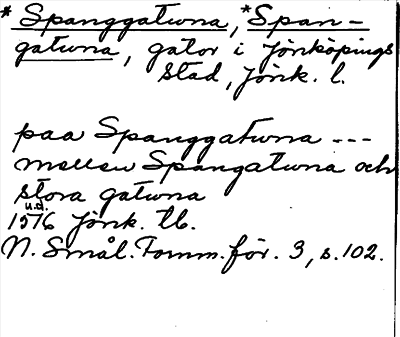 * Spanggatuna, * Span-
gatuna, gator i Jönköpings
stad, Jönk. l.
paa Spanggatuna ---
mellen Spangatuna och
stora gatuna
u.d.
1576 Jönk. tb.
N. Smål. Fornm. för. 3, s. 102.